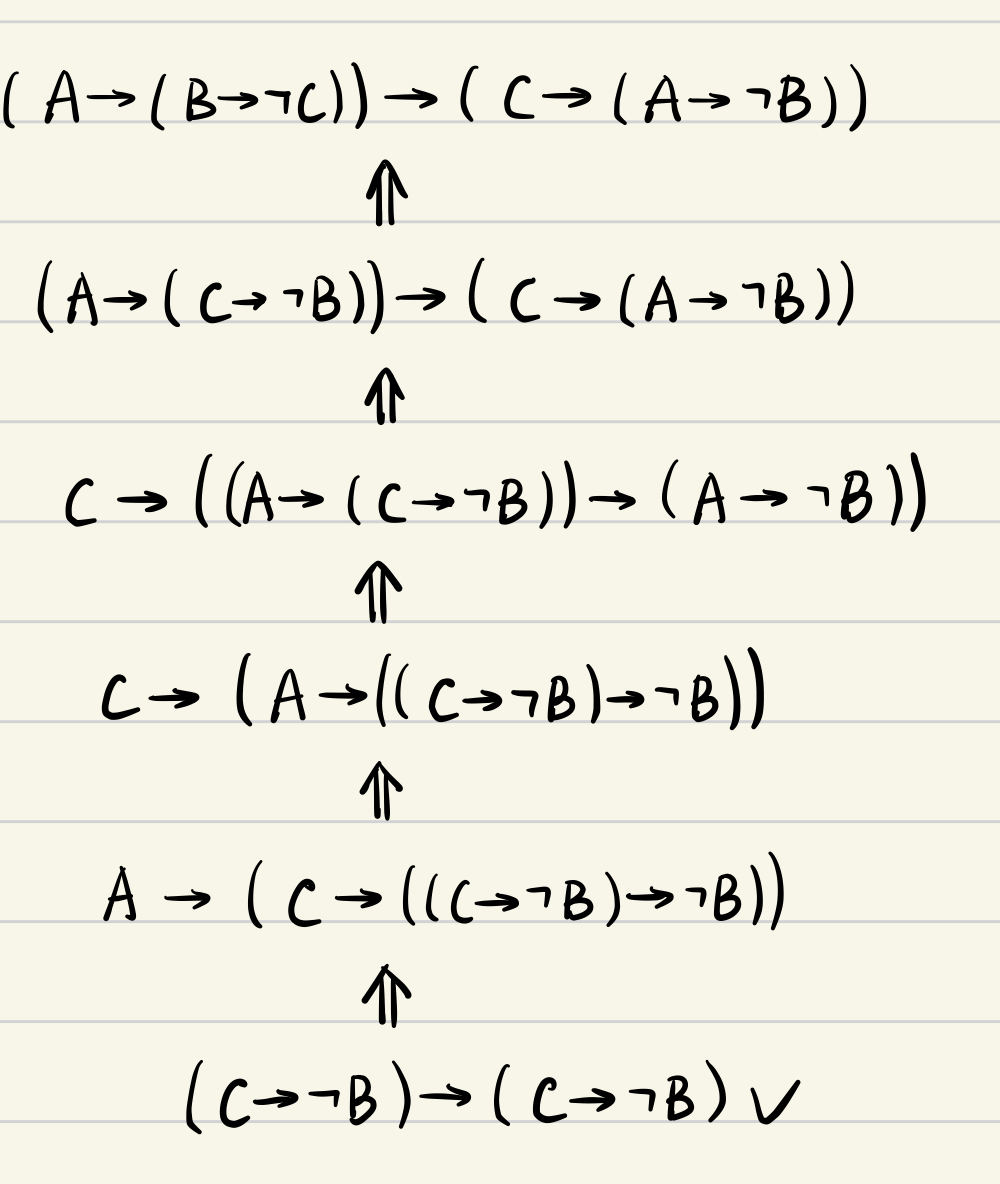 ( A → ( B → ¬C)) → ( C → ( A → ¬B ))
⇑
(A → ( C → ¬B)) → ( C → (A → ¬B))
⇑
C → ((A → ( C → ¬B)) → ( A → ¬B ))
⇑
C → ( A → (( C → ¬B) → ¬B))
⇑
A → ( C → ((C → ¬B) → ¬B))
⇑
(C → ¬B) → ( C → ¬B) ✓